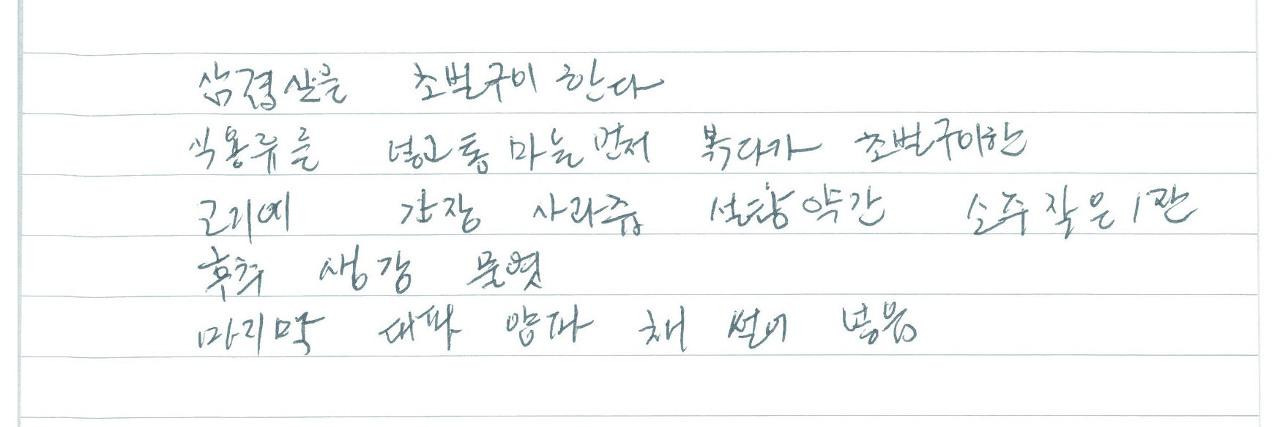 삼겹살을 초벌구이 한다
식용류를 넣고 통마늘 먼저 볶다가 초벌구이한
고기에 간장 사과쥬 설탕약간 소주 작은1잔
후추 생강 물엿
마지막 대파 양파 채 썰어 넣음